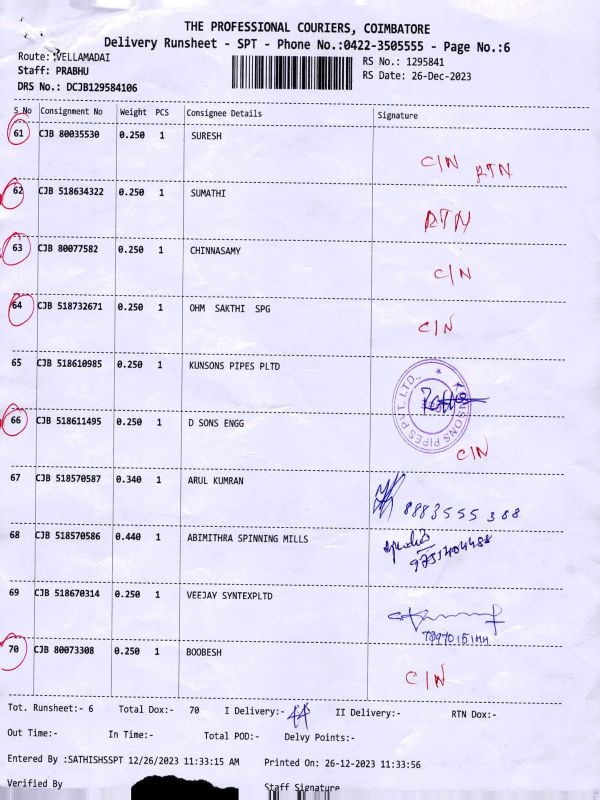 THE PROFESSIONAL COURIERS, COIMBATORE
Delivery Runsheet - SPT - Phone No.:0422-3505555 - Page No.:6
Route: VELLAMADAI
RS No.: 1295841
Staff: PRABHU
RS Date: 26-Dec-2023
DRS No.: DCJB129584106
S No Consignment No Weight PCS Consignee Details Signature
61 CJB 80035530 0.250 1 SURESH
C/N RTN
62 CJB 518634322 0.250 1 SUMATHI
RTN
63 CJB 80077582 0.250 1 CHINNASAMY
C/N
64 CJB 518732671 0.250 1 OHM SAKTHI SPG
C/N
65 CJB 518610985 0.250 1 KUNSONS PIPES PLTD
KONSONS PIPES PVT. LTD.,
66 CJB 518611495 0.250 1 D SONS ENGG
C/N
67 CJB 518570587 0.340 1 ARUL KUMRAN
8883555388
68 CJB 518570586 0.440 1 ABIMITHRA SPINNING MILLS
69 CJB 518670314 0.250 1 VEEJAY SYNTEXPLTD
70 CJB 80073308 0.250 1 BOOBESH
C/N
Tot. Runsheet:- 6 Total Dox:- 70 I Delivery:- 44 II Delivery:- RTN Dox:-
Out Time:- In Time:- Total POD:- Delvy Points:-
Entered By :SATHISHSSPT 12/26/2023 11:33:15 AM Printed On: 26-12-2023 11:33:56
Verified By Staff Signature